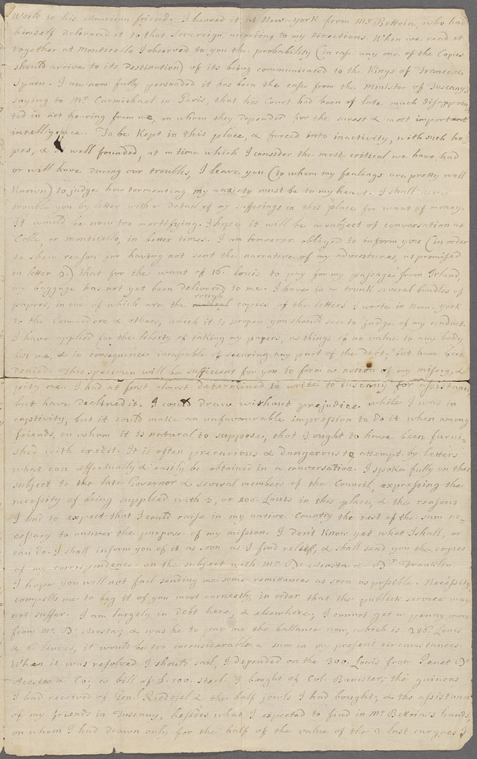 Wrote to his American friend. I heared it at New-york from Mr. Bettoia, who had
himself delivered it to that Sovereign according to my directions. When we read it
together at Monticello I observed to you the probability (in case any one of the Copies
should arrive to its destination) of its being communicated to the Kings of France &
Spain. I am now fully persuaded it has been the case from the Minister of Tuscany's
saying to Mr. Carmichael in Paris, that his Court had been of late much disappoin-
ted in not hearing from me, on whom they depended for the surest & most important
intelligence. To be Kept in this place, & forced into inactivity, with such ho-
pes, & well founded, at a time which I consider the most critical we have had
or will have during our troubles, I leave you (to whom my feelings are pretty well
known) to judge how tormenting my anxiety must be to my heart. I shall
trouble you by letter with a detail of my sufferings in this place for want of money.
It would be now too mortifying. I hope it will be a subject of conversation at
Colle, or Monticello, in better times. I am however obliged to inform you (in order
to shew reason for having not sent the narrative of my adventures, as promised
in letter 2) that for the want of 16 Louis to pay for my passage from Ireland
my baggage has not yet been delivered to me. I have in a trunk several bundles of
papers, in one of which are the rough copies of the letters I wrote in New-york
to the Commodore & others, which it is proper you should see to judge of my conduct.
I have applied for the liberty of taking my papers, as things of no value to any body,
but me, & in consequence incapable of securing any part of the debt, but have been
denied. This specimen will be sufficient for you to form a notion of my misery, &
pity me. I had at first almost determined to write to Tuscany for assistance,
but have declined it. I could draw without prejudice while I was in
captivity, but it could make an unfavourable impression to do it when among
friends, on whom it is natural to suppose, that I ought to have been furni-
shed with credit. It is often precarious & dangerous to attempt by letters
what can effectually & easily be obtained in a conversation. I spoke fully on this
subject to the late Governor & several members of the Council, expressing the
necessity of being supplied with Louis in this place, & the reasons
I had to expect that I could raise in my native Country the rest of the sum ne-
cessary to answer the purpose of my mission. I don't Know yet what I shall, or
can do. I shall inform you of it as soon as I find relief, & shall send you the copies
of my correspondence on the subject with Mr. & Dr. Franklin.
I hope you will not fail sending me some remittances as soon as possible. Necessity
compells me to beg it of you most earnestly, in order that the publick service may
not suffer. I am largely in debt here, & elsewhere; I cannot get a penny more
from Mr. & was he to pay me the ballance now, which is Louis
& 6 livres, it would be too inconsiderable a sum in my present circumstances.
When it was resolved I should sail, I depended on the 300. Louis from
& Co; a bill of £.100. sterl. I bought of Col. Banister; the guineas
I had received of Genl. Riedesel & the half joes I had bought; & the assistance
of my friends in Tuscany, besides what I expected to find in Mr. Bettoia's hands,
on whom I had drawn only for the half of the value of the 2 last cargoes I